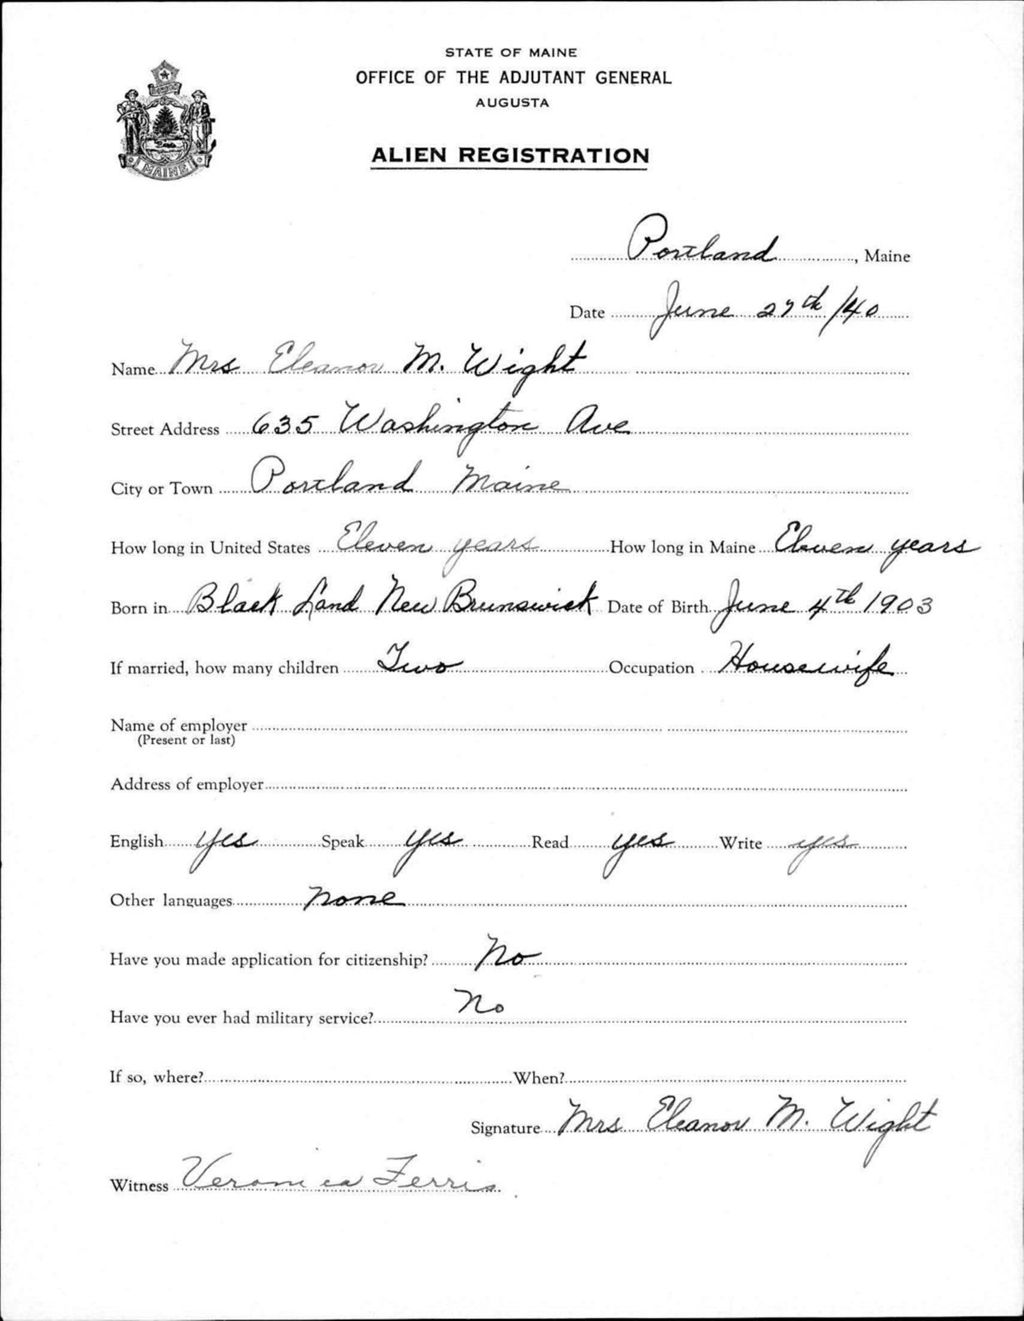 STATE OF MAINE
OFFICE OF THE ADJUTANT GENERAL
AUGUSTA
ALIEN REGISTRATION
MAINE
Portland, Maine
Date June 27th /40
Name Mrs Eleanor M. Wight
Street Address 635 Washington Ave
City or Town Portland Maine
How long in United States Eleven years How long in Maine Eleven years
Born in Black Land New Brunswick Date of Birth June 4th 1903
If married, how many children Two Occupation Housewife
Name of employer
(Present or last)
Address of employer
English yes Speak yes Read yes Write yes
Other languages none
Have you made application for citizenship? No
Have you ever had military service? No
If so, where? When?
Signature Mrs Eleanor M. Wight
Witness Veronica Ferris